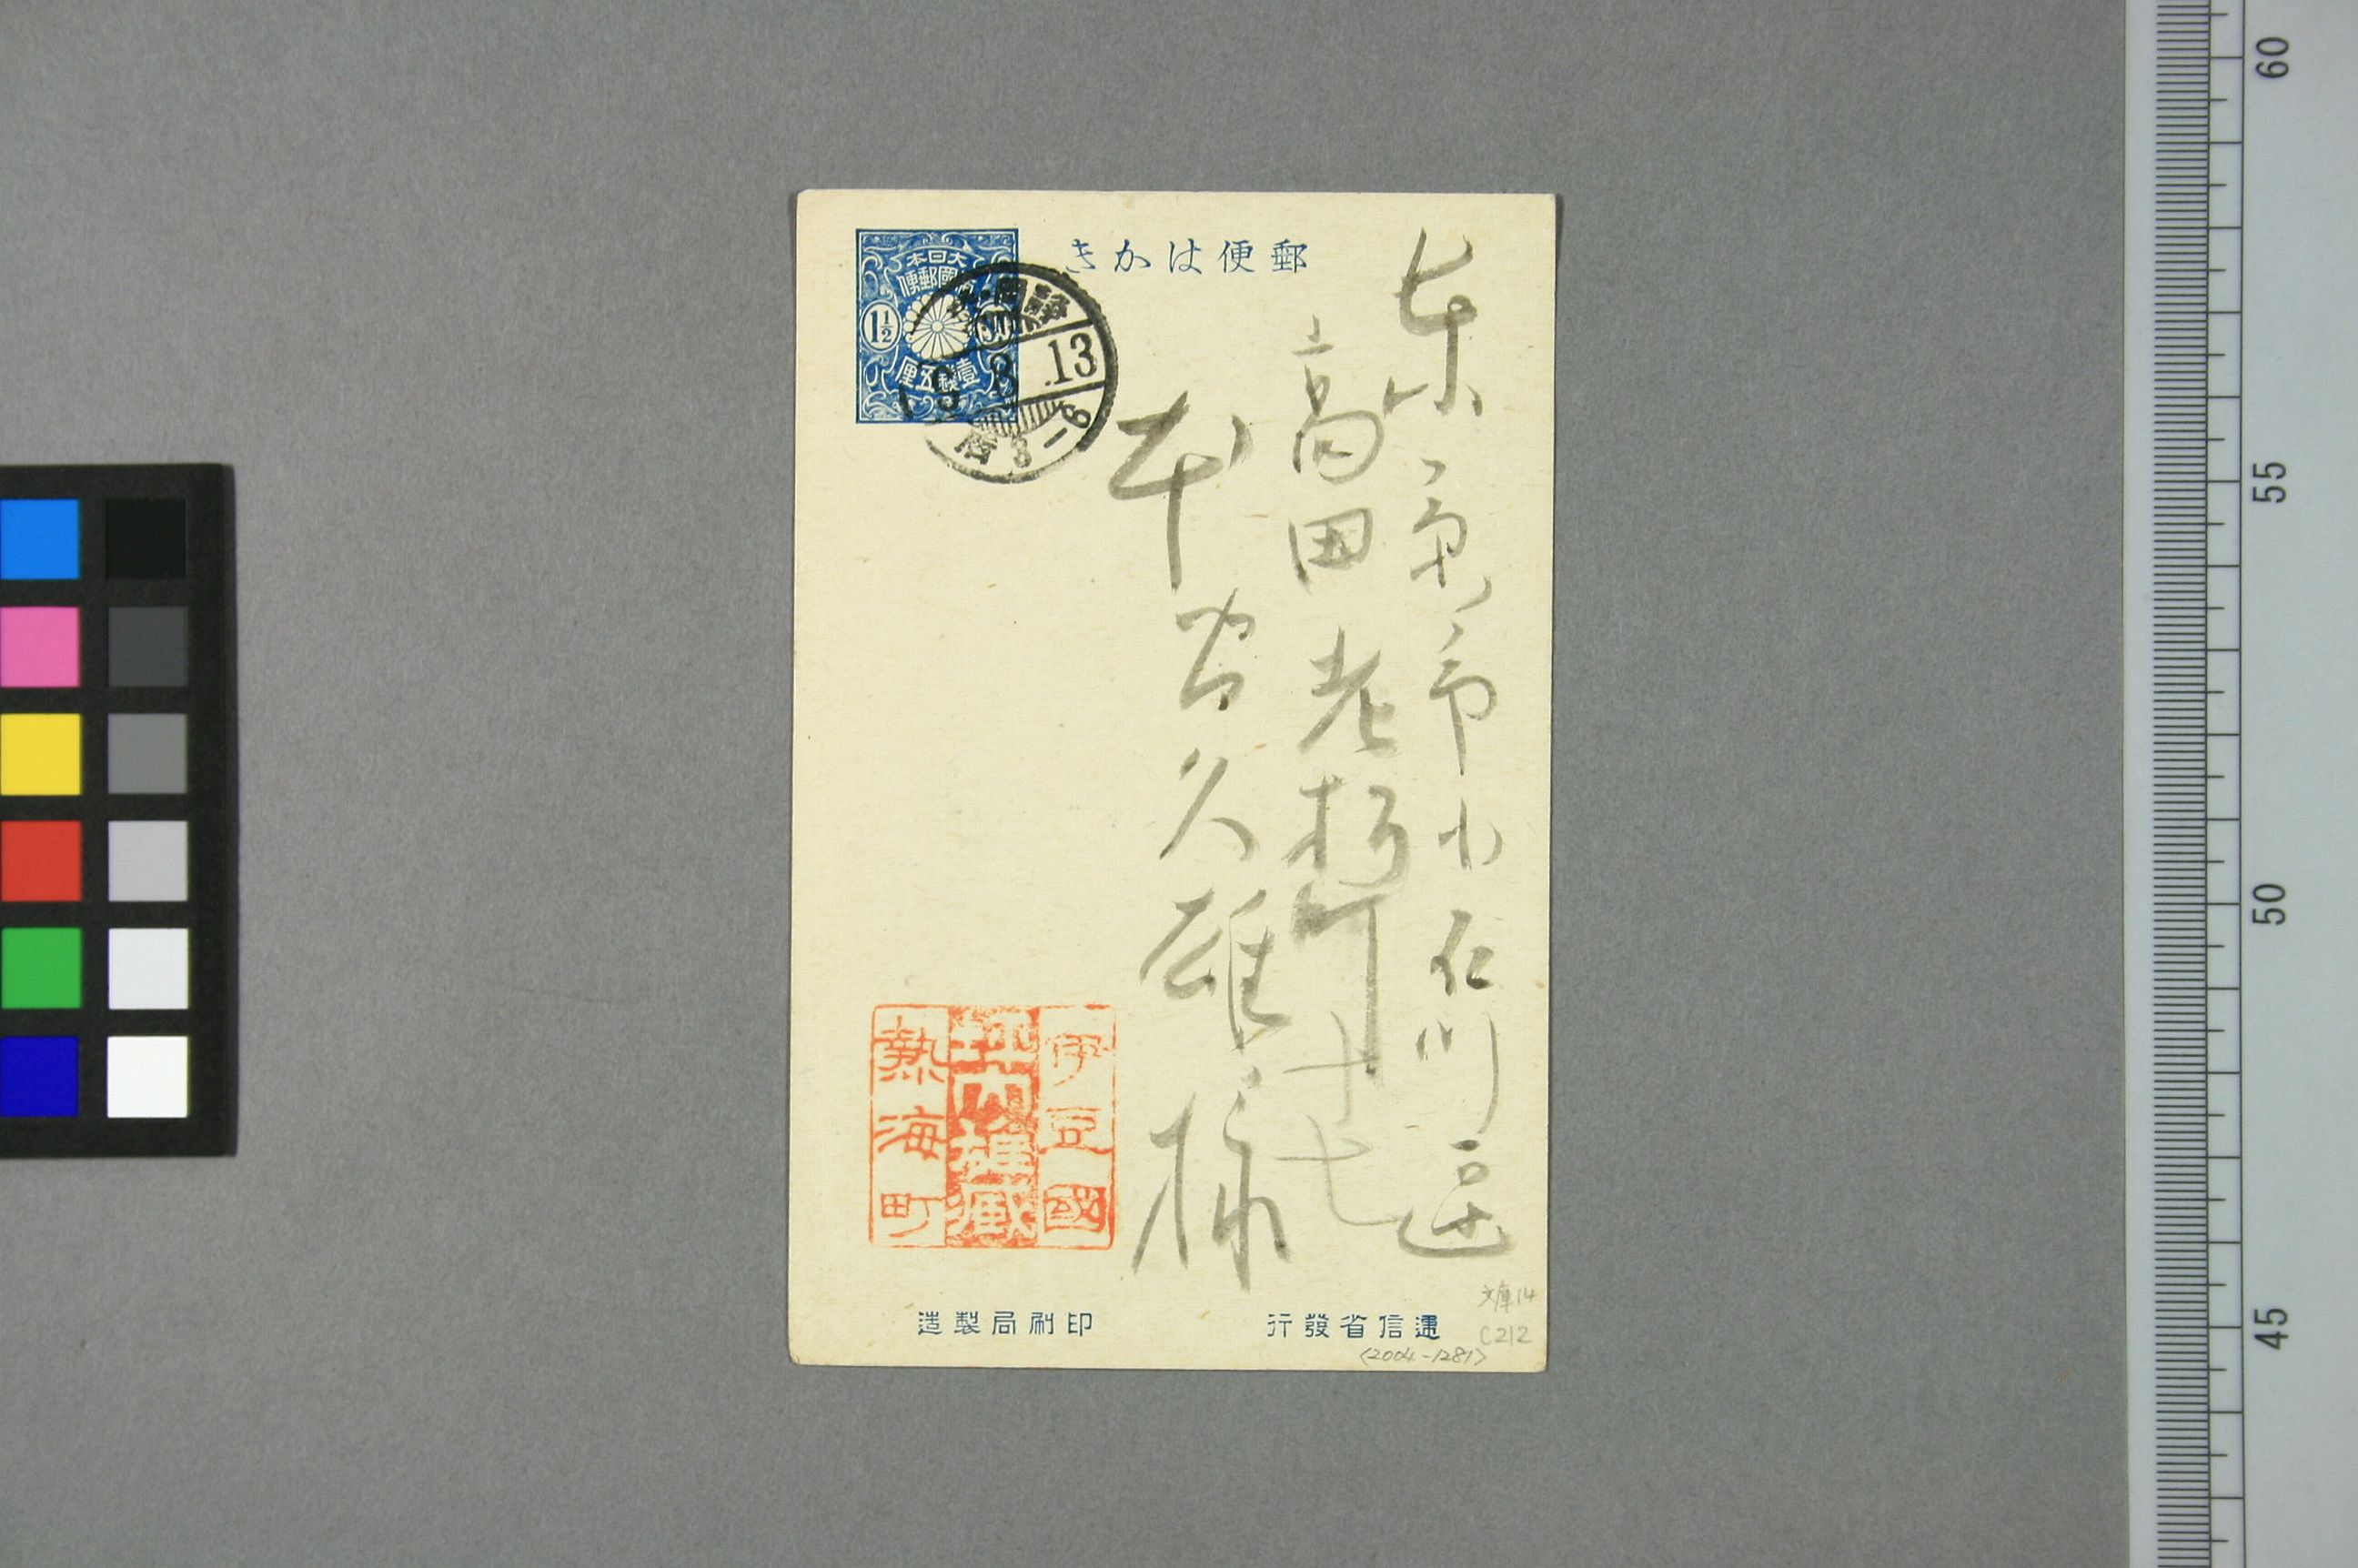 郵便はかき
大日本
帝國郵便
1½
壹錢五厘
靜岡・熱海
9. 8. 13
后 3-6
東京市小石川區
高田老松町十七
本間久雄様
伊豆國
坪内雄藏
熱海町
遞信省發行
印刷局製造
文庫14
C212
<2004-1281>
60
55
50
45